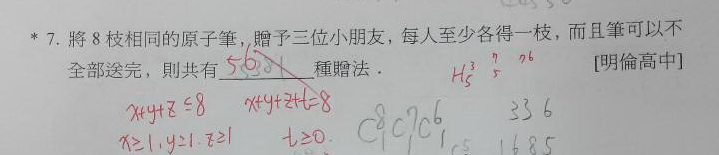 * 7. 將 8 枝相同的原子筆，贈予三位小朋友，每人至少各得一枝，而且筆可以不
全部送完，則共有 56 種贈法． [明倫高中]
H₅³ ⁷₅ ⁷⁶
x+y+z≤8 x+y+z+t=8
x≥1, y≥1, z≥1 t≥0.
C₁⁸C₁⁷C₁⁶ 336
1685